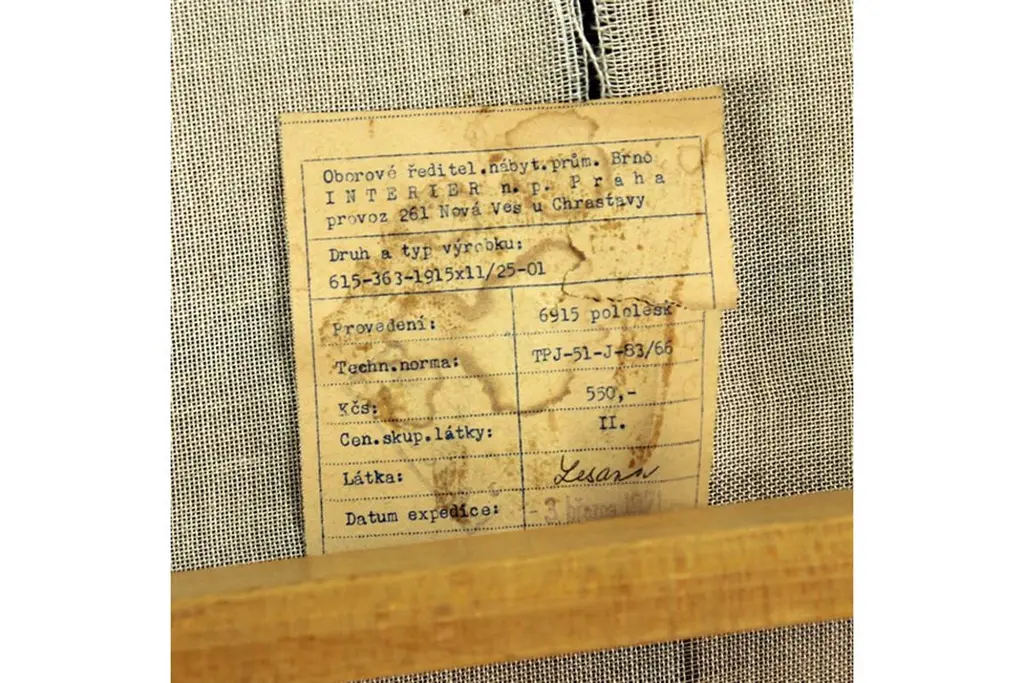 Oborové ředitel.nábyt.prům. Brno
INTERIER n.p. Praha
provoz 261 Nová Ves u Chrastavy
Druh a typ výrobku:
615-363-1915x11/25-01
Provedení: 6915 pololesk
Techn.norma: TPJ-51-J-83/66
Kčs: 550,-
Cen.skup.látky: II.
Látka:
Datum expedice: - 3 března 1971